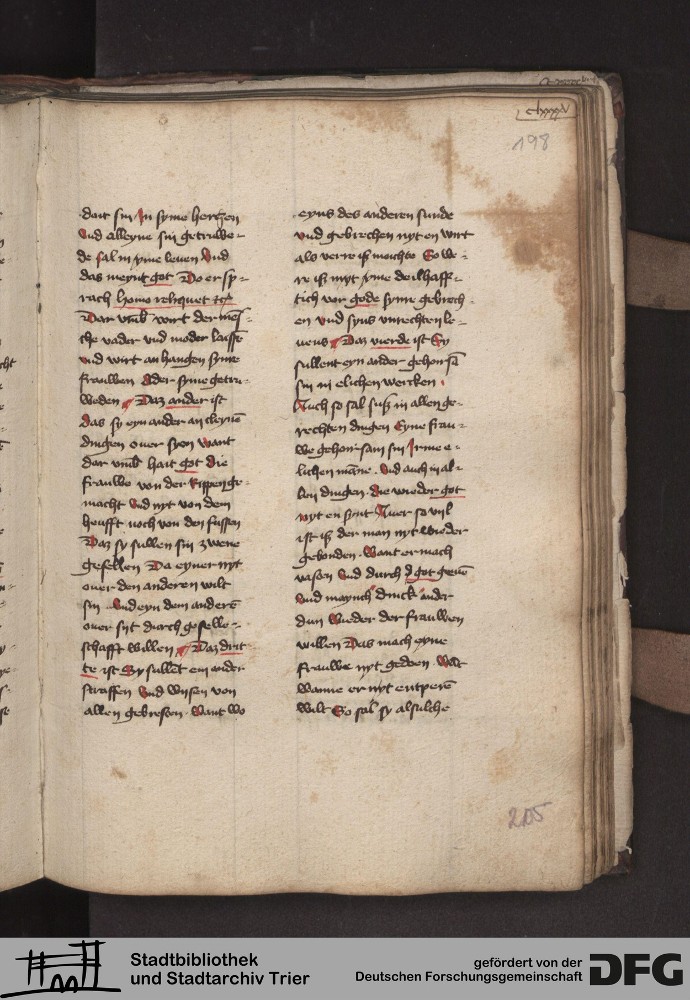 clxxxxv
198
doit sin In syme hertzen
vnd alleyne sin getruwe-
de sal in yme leuen vnd
das meynt got Do er sp-
rach homo relinquet etc
Dar vmb wirt der mes-
che vader vnd moder laissē
vnd wirt an hangen syme
frauwen Ader syme getru-
weden Daz ander ist
das sy eyn ander an cleynē
dingen ouer syen want
dar vmb hait got die
frauwe von der Rippen ge-
macht vnd nyt von dem
heufft noch von den fussen
Daz sy sullen sin zwene
gesellen Da eyner nyt
ouer den anderen wilt
sin vnd eyn dem anderē
ouer syt durch geselle-
schafft willen Daz drit-
te ist Sy sullēt ein ander
straffen vnd wysen von
allen gebresen want wo
eyns des anderen sunde
vnd gebrechen nyt en wirt
als verre iß mochte So we-
re iß myt yme deilhaff-
tich vor gode syme gebrech
en vnd syns vnrechten le-
uens Daz vierde ist Sy
sullent eyn ander gehorsā
sin in elichen wercken
Auch so sal suß in allen ge-
rechten dingen Eyne frau-
we gehorsam sin Irme e-
lichen māne vnd auch in al-
len dingen die wieder got
nyt en synt Auer so vil
ist iß der man nyt wieder
gebonden want er mach
vasten vnd durch got geuē
vnd maynch dinck ander
dun wieder der frauwen
willen Das mach eyne
frauwe nyt gedoen
wanne er nyt entperē
wilt So sal sy alsulche
205
Stadtbibliothek
und Stadtarchiv Trier
gefördert von der
Deutschen Forschungsgemeinschaft
DFG